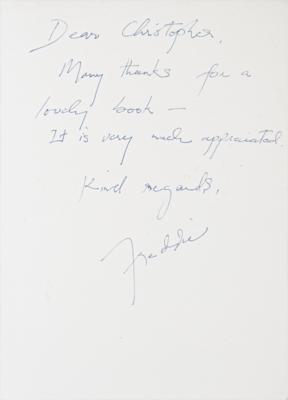 Dear Christopher,
Many thanks for a
lovely book —
It is very much appreciated.
Kind regards,
Freddie